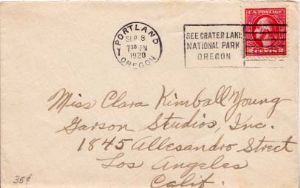 PORTLAND
SEP 8
7 30 PM
1920
OREGON
1
SEE CRATER LAKE
NATIONAL PARK
OREGON
Miss Clara Kimball Young
Garson Studios, Inc.
1845 Allesandro Street
Los Angeles
Calif.
35¢